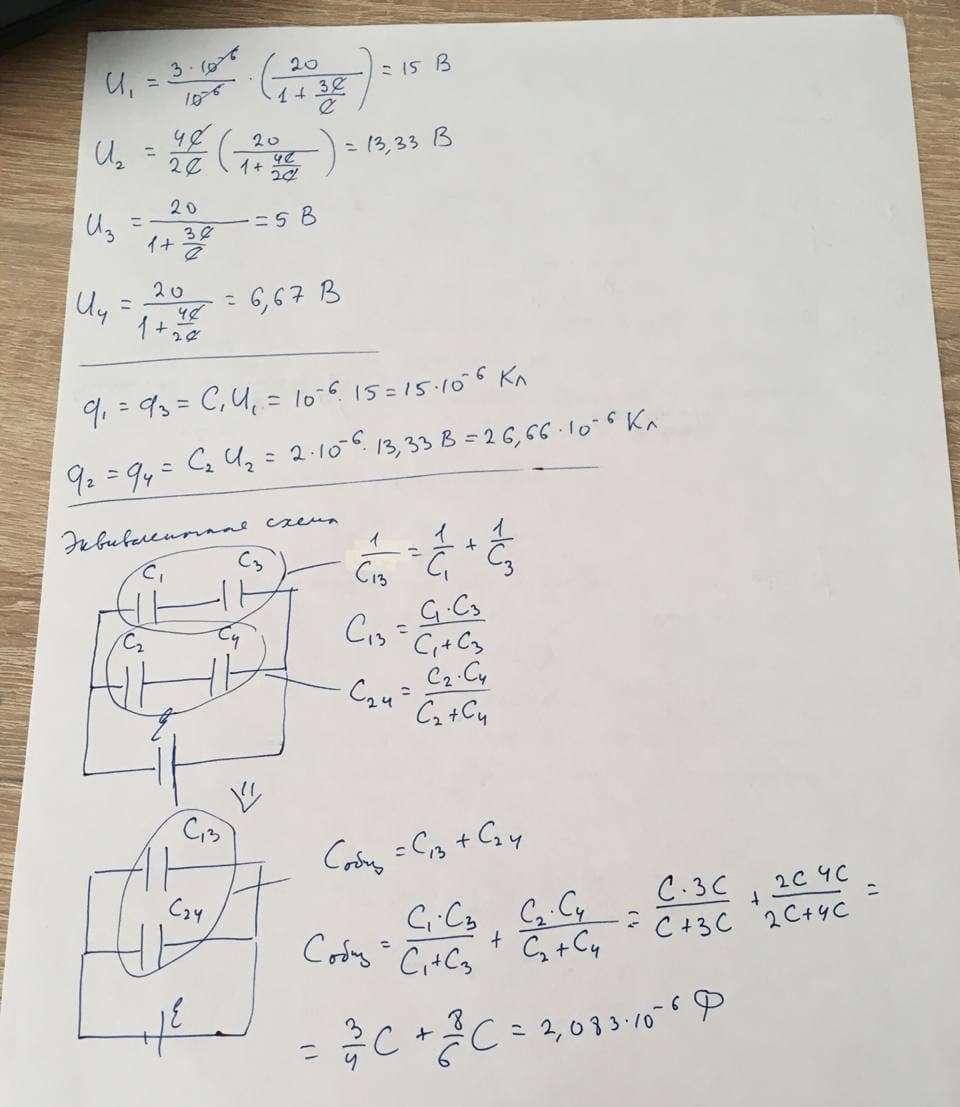 U₁ = 3·10⁻⁶/10⁻⁶ · (20/(1+3C/C)) = 15 В
U₂ = 4C/2C (20/(1+4C/2C)) = 13,33 В
U₃ = 20/(1+3C/C) = 5 В
U₄ = 20/(1+4C/2C) = 6,67 В
q₁ = q₃ = C₁U₁ = 10⁻⁶·15 = 15·10⁻⁶ Кл
q₂ = q₄ = C₂U₂ = 2·10⁻⁶·13,33 В = 26,66·10⁻⁶ Кл
Эквивалентная схема
C₁ C₃ 1/C₁₃ = 1/C₁ + 1/C₃
C₂ C₄ C₁₃ = C₁·C₃/(C₁+C₃)
C₂₄ = C₂·C₄/(C₂+C₄)
ℰ
C₁₃ Cобщ = C₁₃ + C₂₄
C₂₄ Cобщ = C₁·C₃/(C₁+C₃) + C₂·C₄/(C₂+C₄) = C·3C/(C+3C) + 2C 4C/(2C+4C) =
ℰ
= 3/4 C + 8/6 C = 2,083·10⁻⁶ Ф